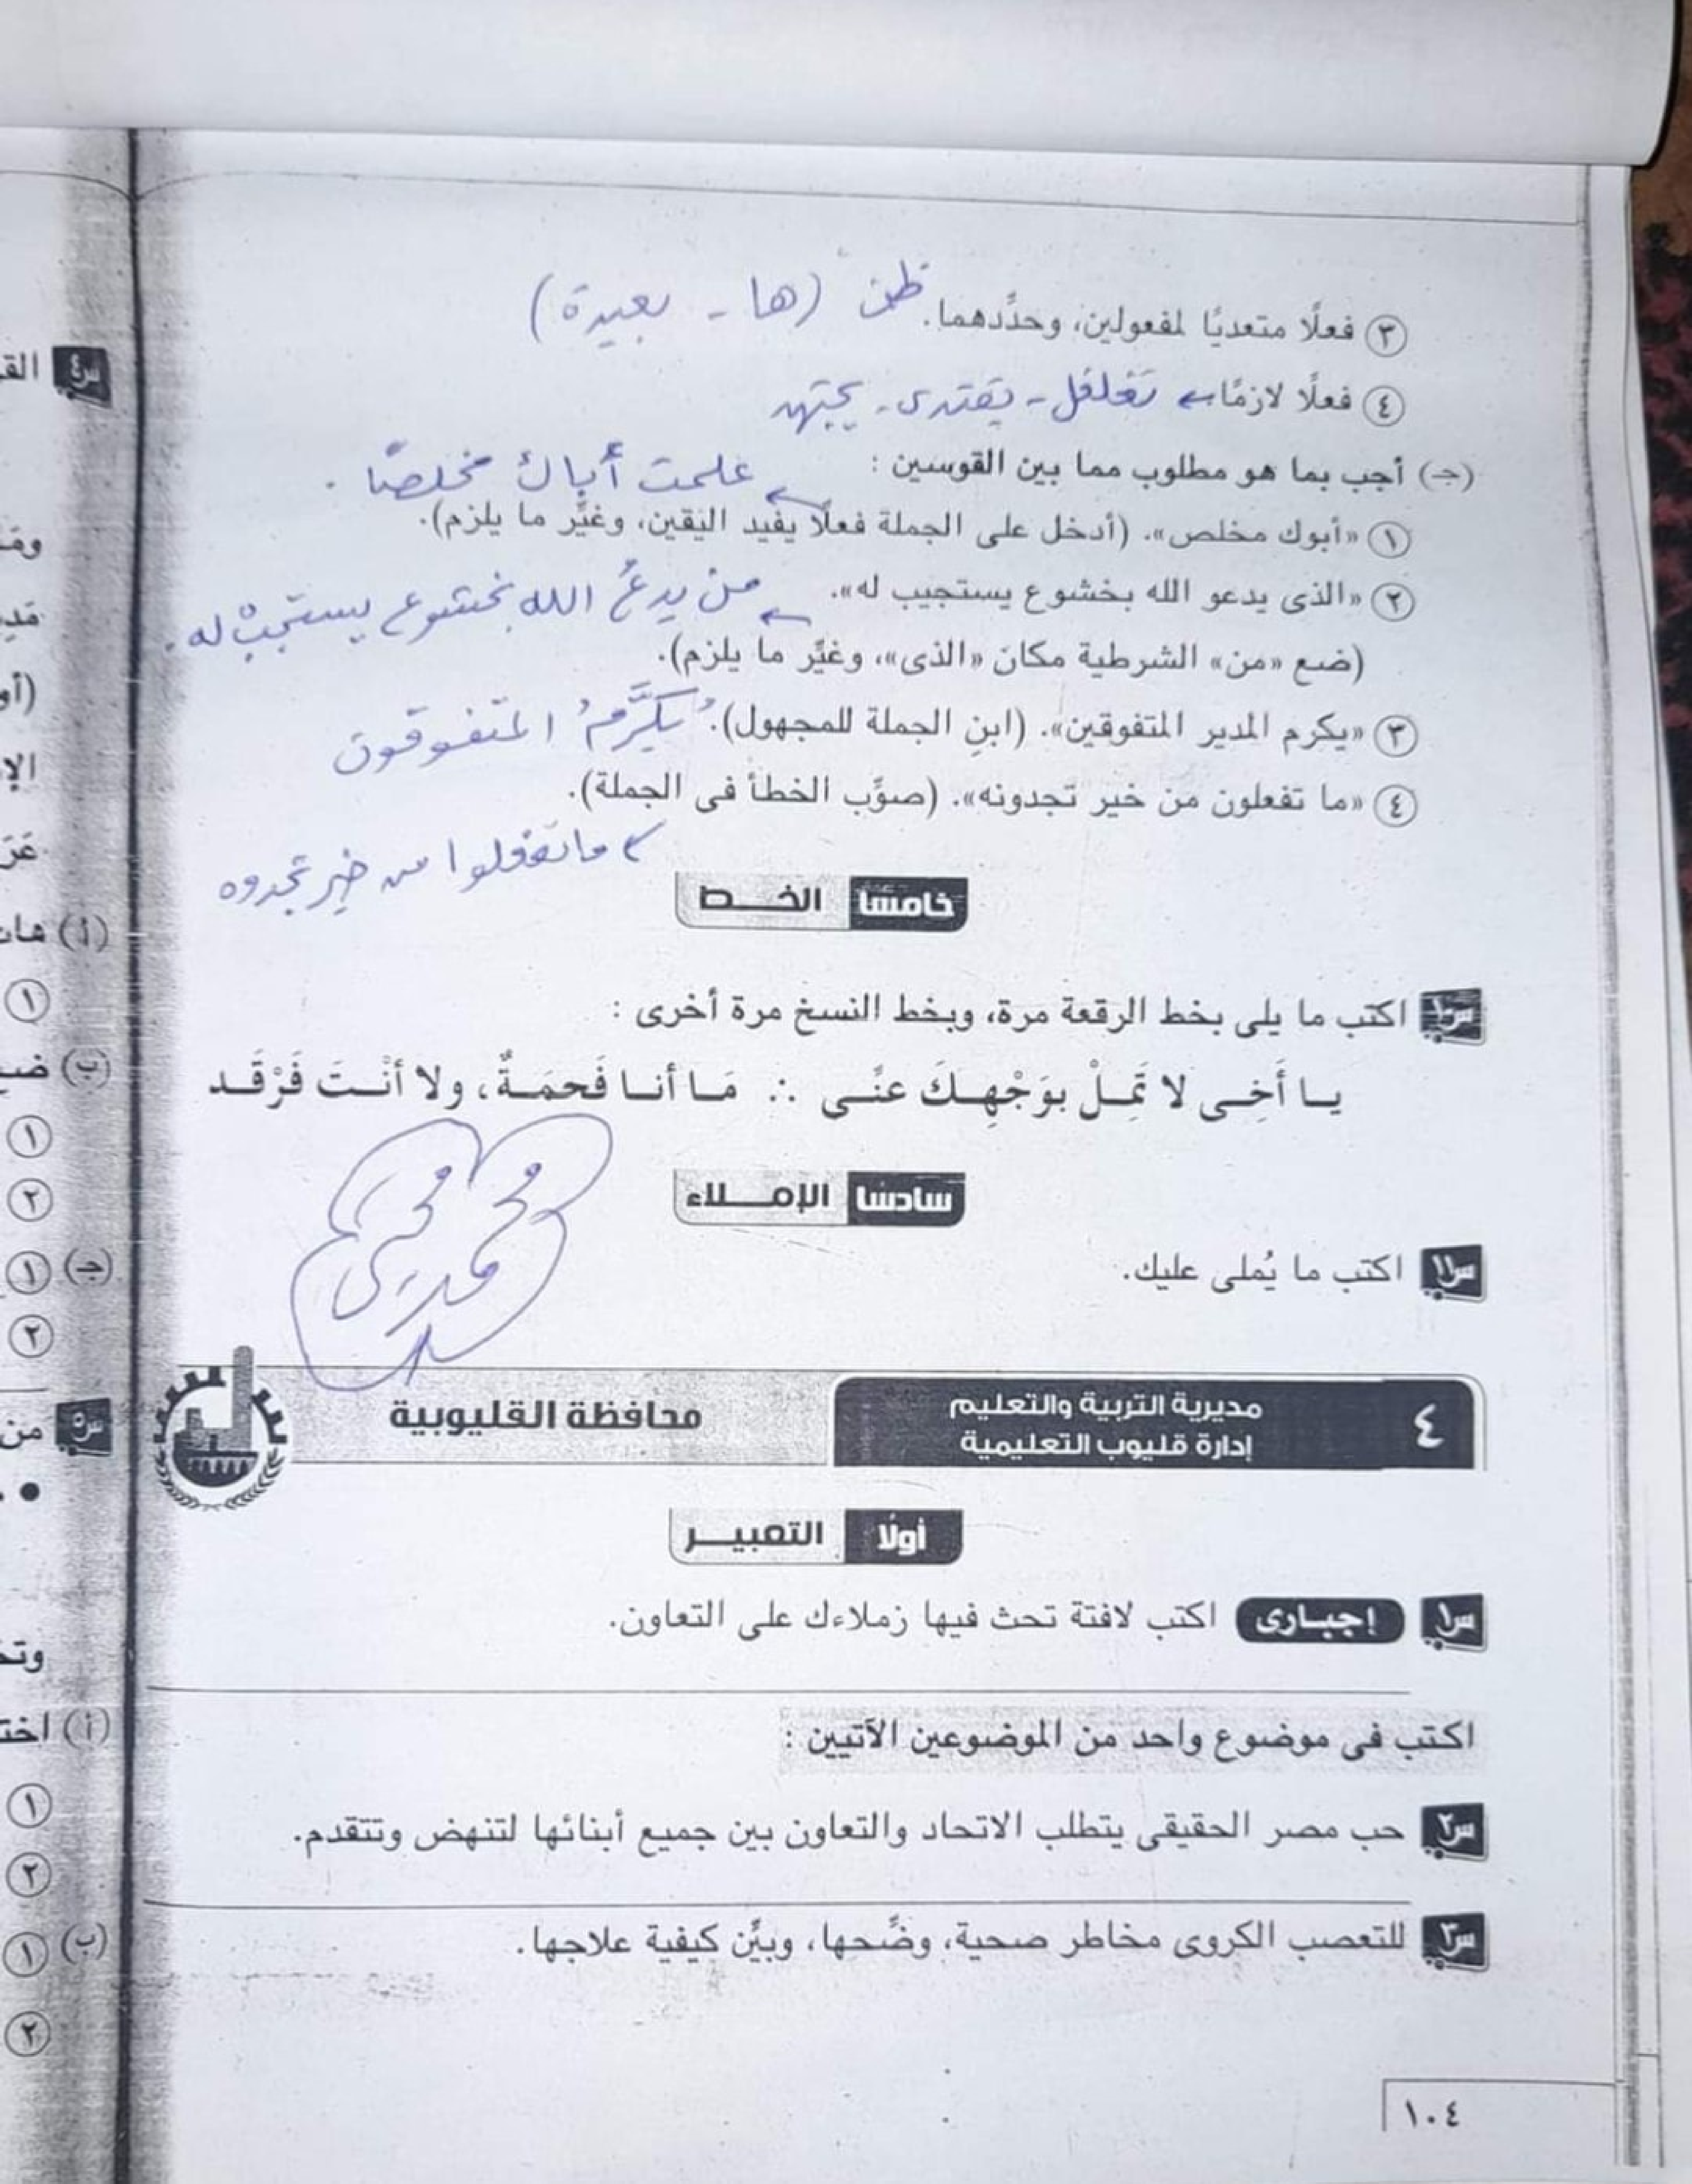 ③ فعلًا متعديًا لمفعولين، وحدِّدهما. ظن (ها - بعيدة)
④ فعلًا لازمًا ← تغلغل - يقتدى - يجتهد
(جـ) أجب بما هو مطلوب مما بين القوسين :
علمت أباك مخلصًا .
① «أبوك مخلص». (أدخل على الجملة فعلًا يفيد اليقين، وغيِّر ما يلزم).
② «الذى يدعو الله بخشوع يستجيب له». ← من يدعُ الله بخشوع يستجبْ له .
(ضع «من» الشرطية مكان «الذى»، وغيِّر ما يلزم).
③ «يكرم المدير المتفوقين». (ابنِ الجملة للمجهول). يُكَرَّمُ المتفوقون
④ «ما تفعلون من خير تجدونه». (صوِّب الخطأ فى الجملة).
← ما تفعلوا من خير تجدوه
خامسًا الخـــط
س١٠ اكتب ما يلى بخط الرقعة مرة، وبخط النسخ مرة أخرى :
يـا أَخِـى لا تَمِـلْ بوَجْهِـكَ عنِّـى ∴ مَـا أنـا فَحمَـةٌ، ولا أنْـتَ فَرْقَـد
سادسًا الإمـــلاء
س١١ اكتب ما يُملى عليك.
٤ مديرية التربية والتعليم
إدارة قليوب التعليمية
محافظة القليوبية
أولًا التعبيـــر
س١ إجبـارى اكتب لافتة تحث فيها زملاءك على التعاون.
اكتب فى موضوع واحد من الموضوعين الآتيين :
س٢ حب مصر الحقيقى يتطلب الاتحاد والتعاون بين جميع أبنائها لتنهض وتتقدم.
س٣ للتعصب الكروى مخاطر صحية، وضِّحها، وبيِّن كيفية علاجها.
١٠٤
س٤
(أ)
①
(ب)
①
②
(جـ) ①
②
س٥ من
(أ)
①
②
(ب) ①
②